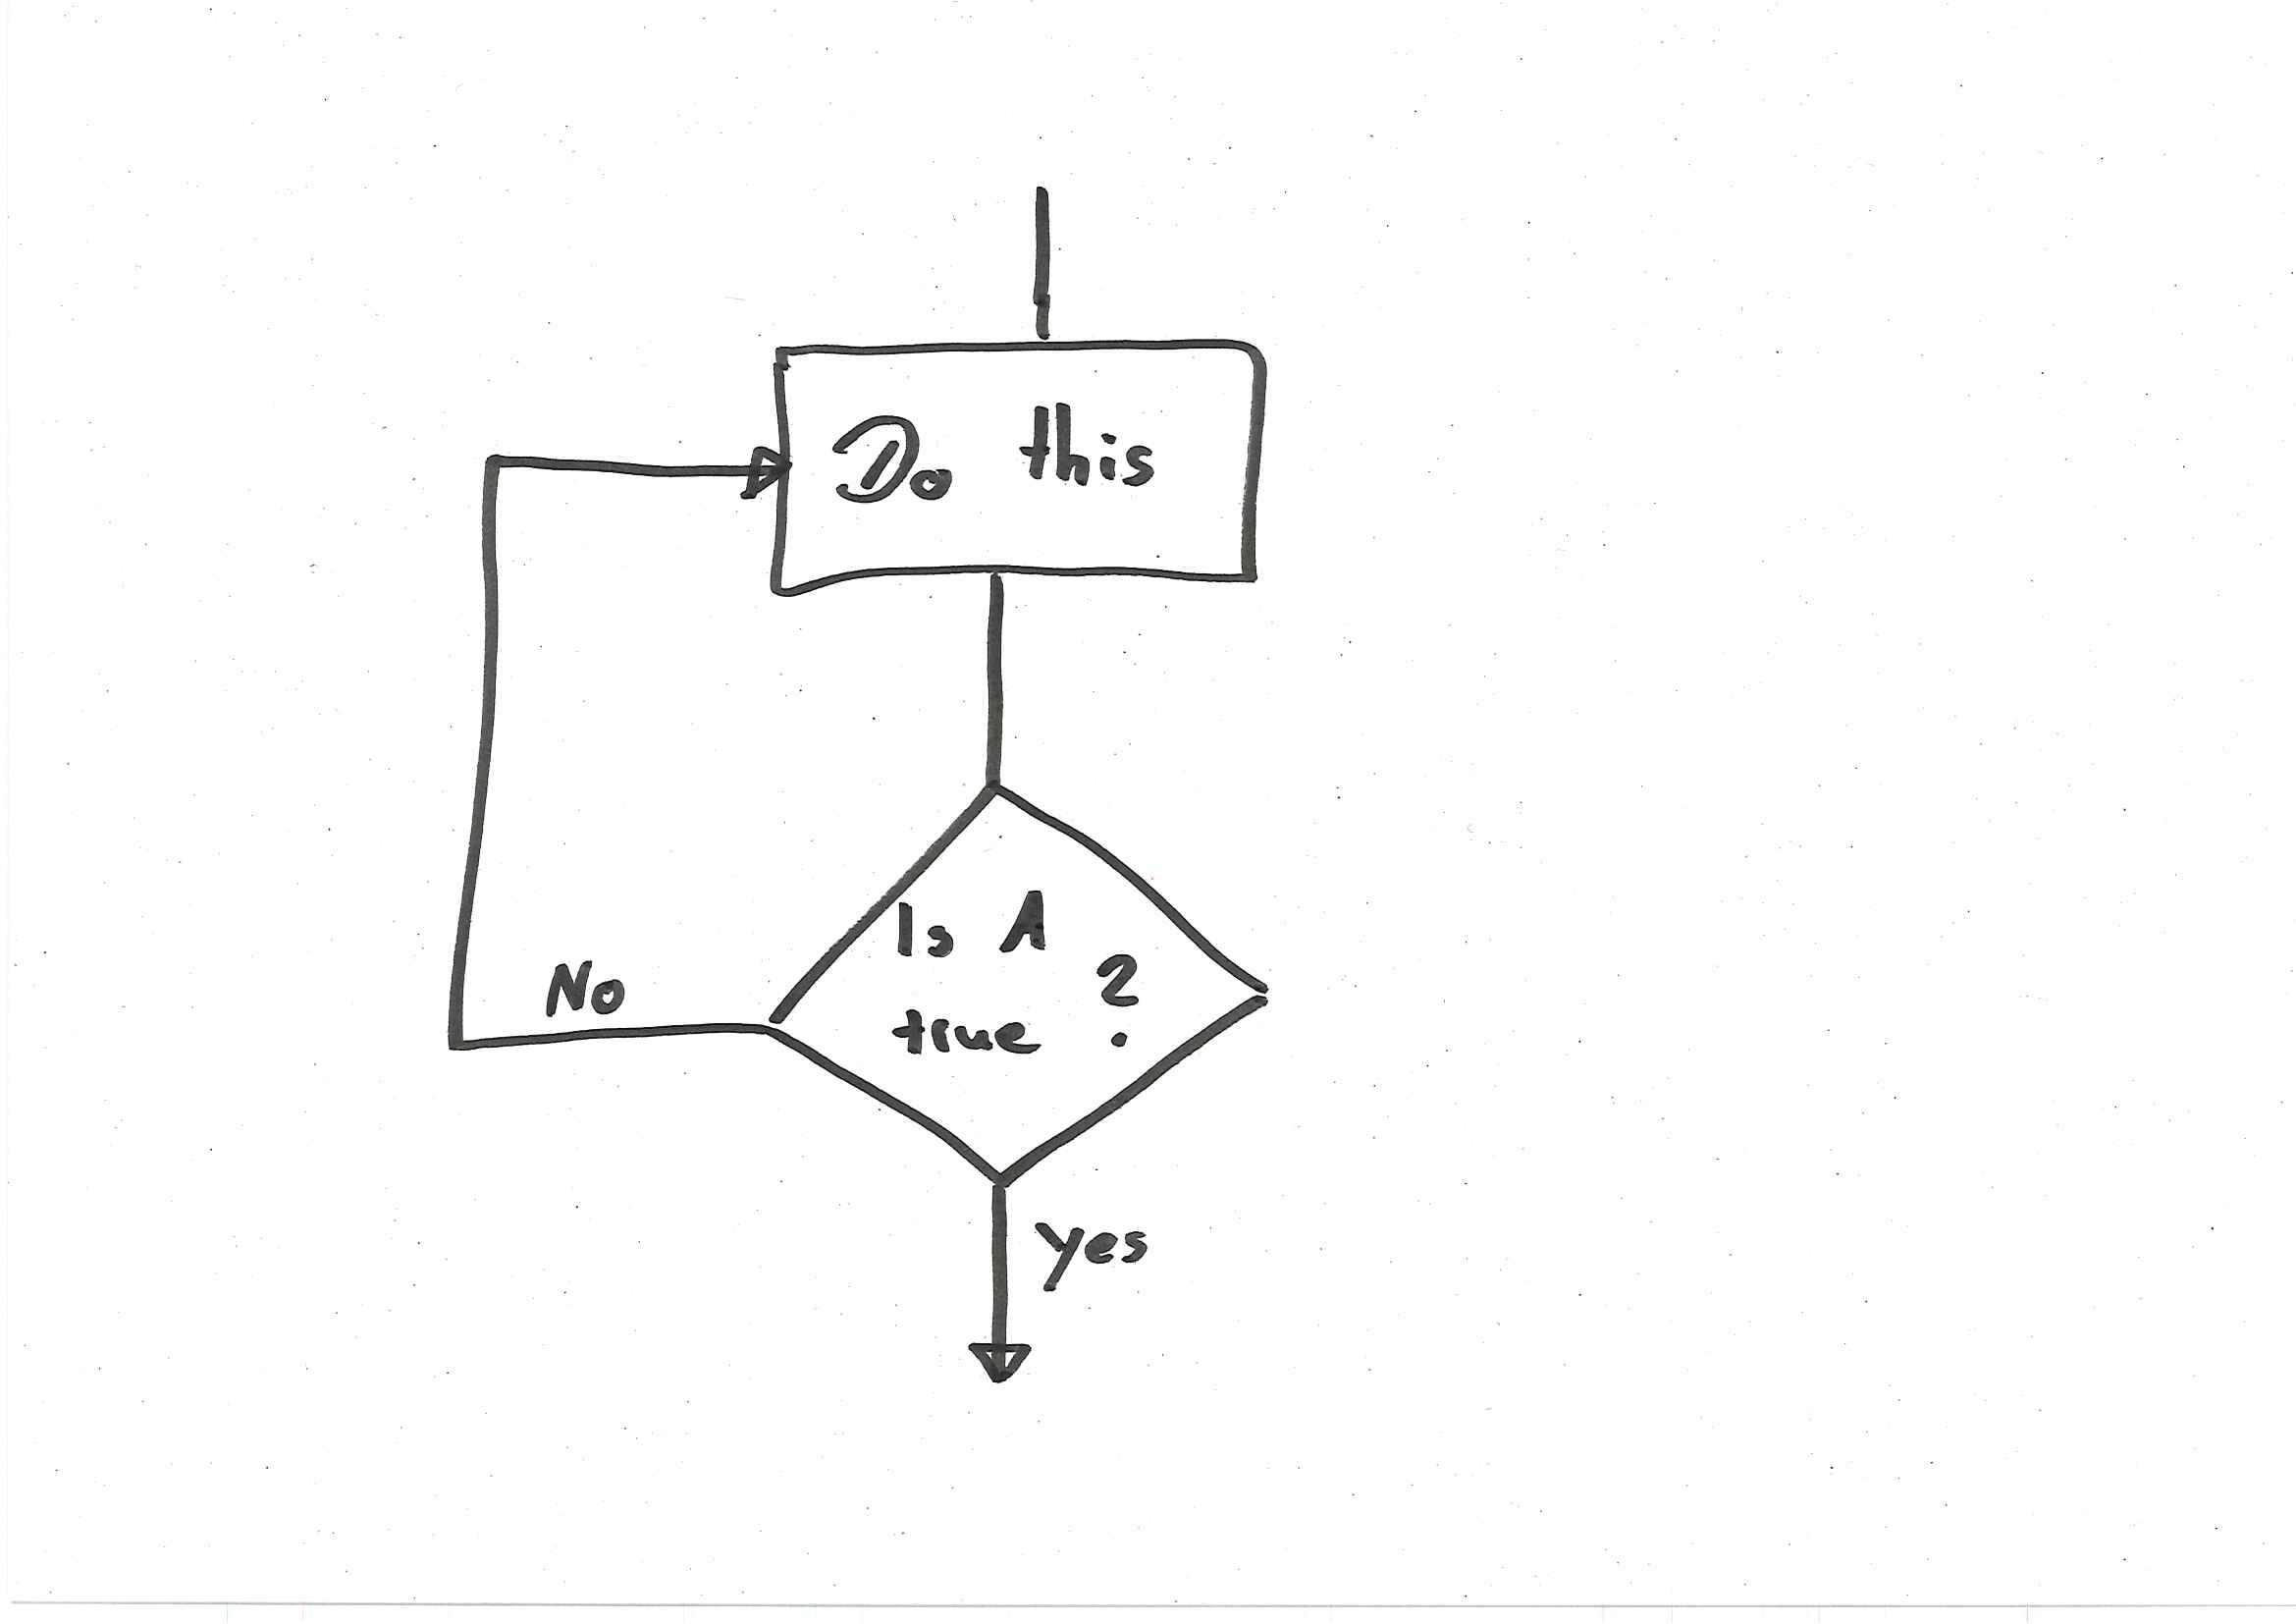 Do this
Is A
true ?
No
yes